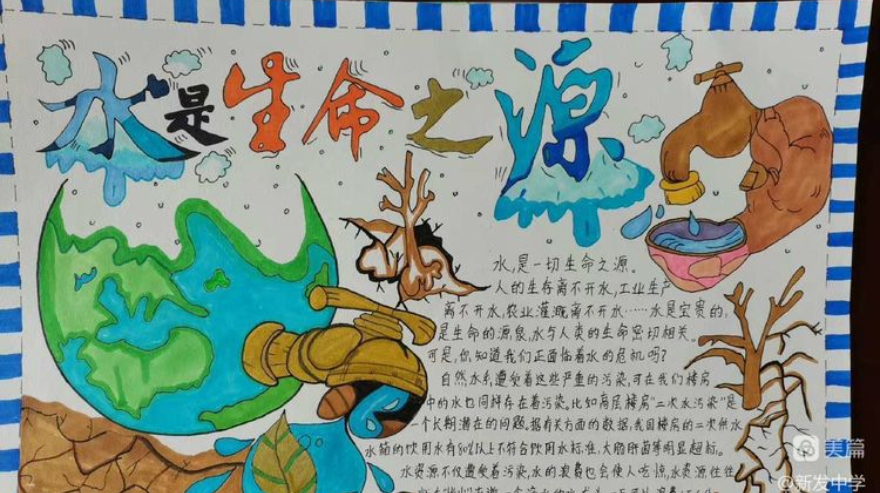 水是生命之源
水,是一切生命之源。
人的生存离不开水,工业生产
离不开水,农业灌溉离不开水……水是宝贵的,
是生命的源泉,水与人类的生命密切相关。
可是,你知道我们正面临着水的危机吗?
自然水系遭受着这些严重的污染,可在我们楼房
中的水也同样存在着污染。比如高层楼房"二次水污染"是
一个长期潜在的问题。据有关方面的数据,我国楼房的二次供水
水箱的饮用水有80%以上不符合饮用水标准,大肠肝菌等明显超标。
水资源不仅遭受着污染,水的浪费也会使人吃惊,水资源往往
美篇
@新发中学